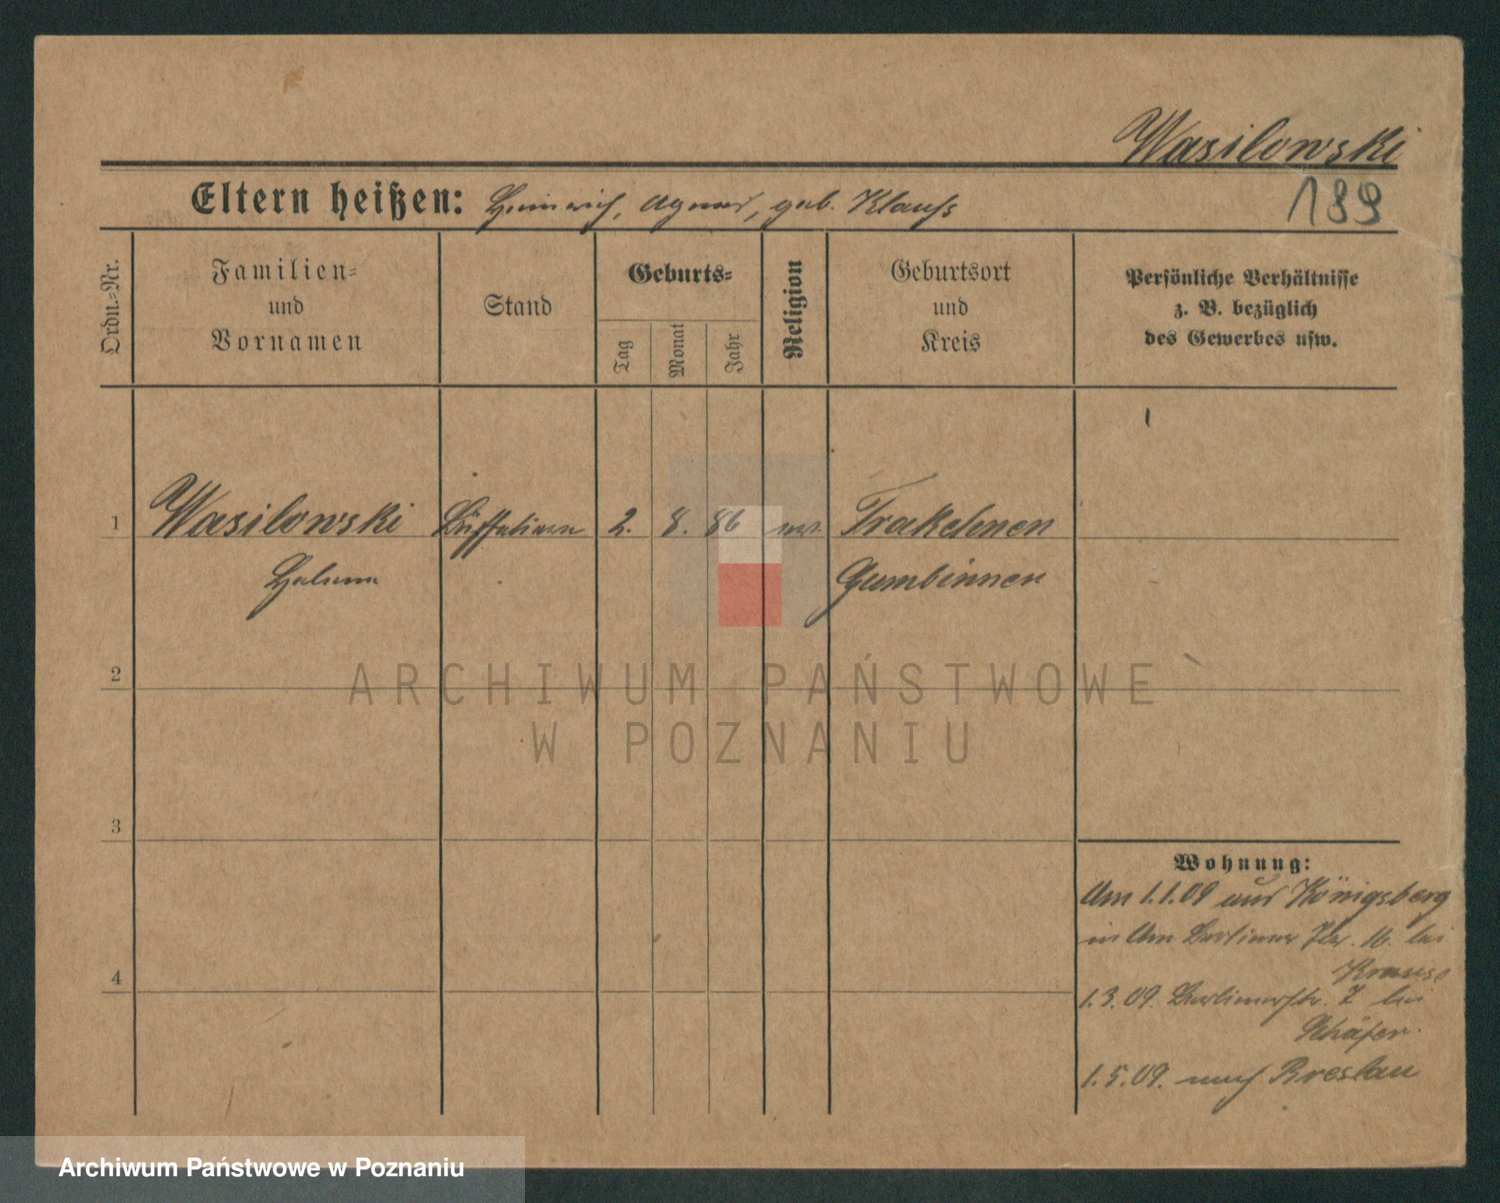 Wasilowski
189
Eltern heißen: Heinrich, Agnes, geb. Klauß
Ordn.=Nr.
Familien=
und
Vornamen
Stand
Geburts=
Tag
Monat
Jahr
Religion
Geburtsort
und
Kreis
Persönliche Verhältnisse
z. B. bezüglich
des Gewerbes usw.
1
Wasilowski
Helene
2. 8. 86
Trakehnen
Gumbinnen
2
3
4
Wohnung:
Am 1.1.09 aus Königsberg
in Am Berliner Tor. 16. bei
Krause
1.3.09. Berlinerstr. 7 bei
Schäfer.
1.5.09. nach Breslau
ARCHIWUM PAŃSTWOWE
W POZNANIU
Archiwum Państwowe w Poznaniu